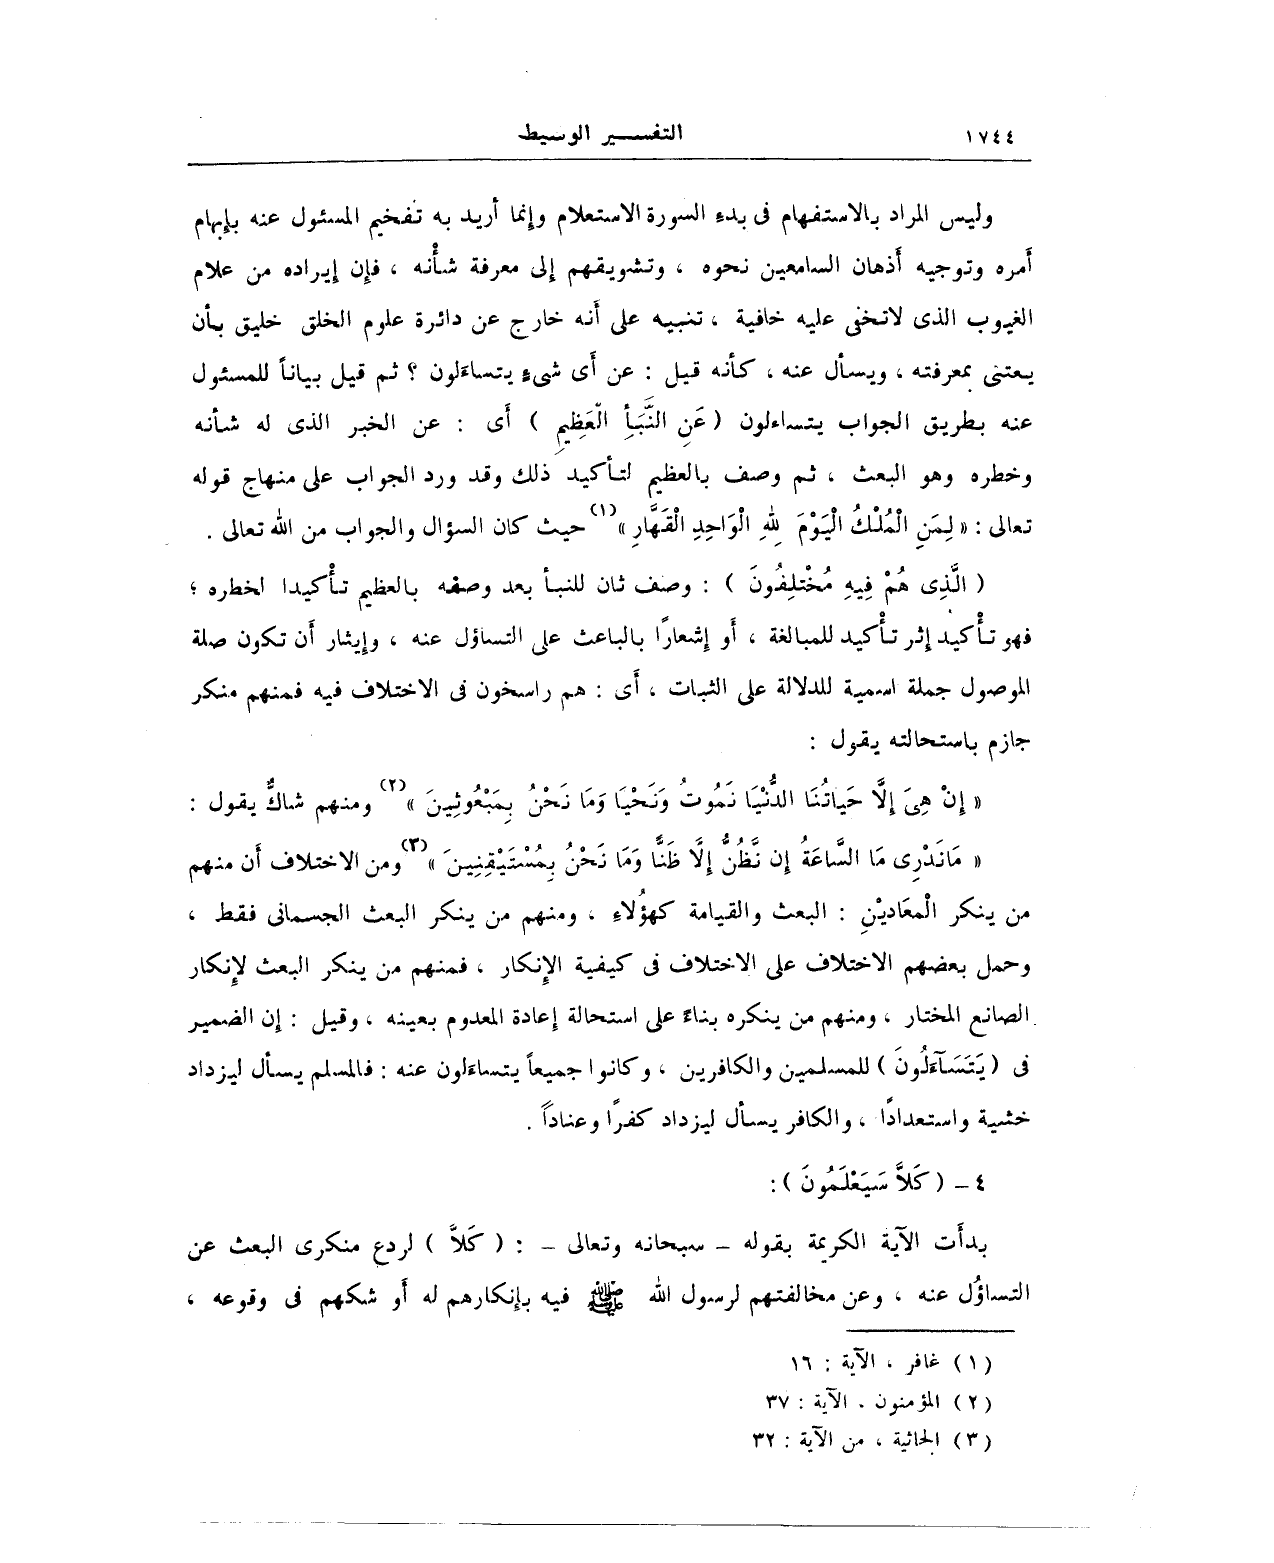 ١٧٤٤ التفسير الوسيط
وليس المراد بالاستفهام فى بدء السورة الاستعلام وإنما أريد به تفخيم المسئول عنه بإبهام
أمره وتوجيه أذهان السامعين نحوه ، وتشويقهم إلى معرفة شأنه ، فإن إيراده من علام
الغيوب الذى لاتخفى عليه خافية ، تنبيه على أنه خارج عن دائرة علوم الخلق خليق بأن
يعتنى بمعرفته ، ويسأل عنه ، كأنه قيل : عن أى شىءٍ يتساءلون ؟ ثم قيل بياناً للمسئول
عنه بطريق الجواب يتساءلون ( عَنِ النَّبَأِ الْعَظِيمِ ) أى : عن الخبر الذى له شأنه
وخطره وهو البعث ، ثم وصف بالعظيم لتأكيد ذلك وقد ورد الجواب على منهاج قوله
تعالى : « لِمَنِ الْمُلْكُ الْيَوْمَ لِلهِ الْوَاحِدِ الْقَهَّارِ »(١) حيث كان السؤال والجواب من الله تعالى .
( الَّذِى هُمْ فِيهِ مُخْتَلِفُونَ ) : وصف ثان للنبأ بعد وصفه بالعظيم تأكيدا لخطره ؛
فهو تأكيد إثر تأكيد للمبالغة ، أو إشعارًا بالباعث على التساؤل عنه ، وإيثار أن تكون صلة
الموصول جملة اسمية للدلالة على الثبات ، أى : هم راسخون فى الاختلاف فيه فمنهم منكر
جازم باستحالته يقول :
« إِنْ هِىَ إِلَّا حَيَاتُنَا الدُّنْيَا نَمُوتُ وَنَحْيَا وَمَا نَحْنُ بِمَبْعُوثِينَ »(٢) ومنهم شاكٌّ يقول :
« مَانَدْرِى مَا السَّاعَةُ إِن نَّظُنُّ إِلَّا ظَنًّا وَمَا نَحْنُ بِمُسْتَيْقِنِينَ »(٣) ومن الاختلاف أن منهم
من ينكر الْمعَاديْنِ : البعث والقيامة كهؤُلاءِ ، ومنهم من ينكر البعث الجسمانى فقط ،
وحمل بعضهم الاختلاف على الاختلاف فى كيفية الإنكار ، فمنهم من ينكر البعث لإنكار
الصانع المختار ، ومنهم من ينكره بناءً على استحالة إعادة المعدوم بعينه ، وقيل : إن الضمير
فى ( يَتَسَآءَلُونَ ) للمسلمين والكافرين ، وكانوا جميعاً يتساءلون عنه : فالمسلم يسأل ليزداد
خشية واستعدادًا ، والكافر يسأل ليزداد كفرًا وعناداً .
٤ – ( كَلاَّ سَيَعْلَمُونَ ) :
بدأَت الآية الكريمة بقوله – سبحانه وتعالى – : ( كَلاَّ ) لردع منكرى البعث عن
التساؤُل عنه ، وعن مخالفتهم لرسول الله ﷺ فيه بإنكارهم له أو شكهم فى وقوعه ،
(١) غافر ، الآية : ١٦
(٢) المؤمنون . الآية : ٣٧
(٣) الجاثية ، من الآية : ٣٢